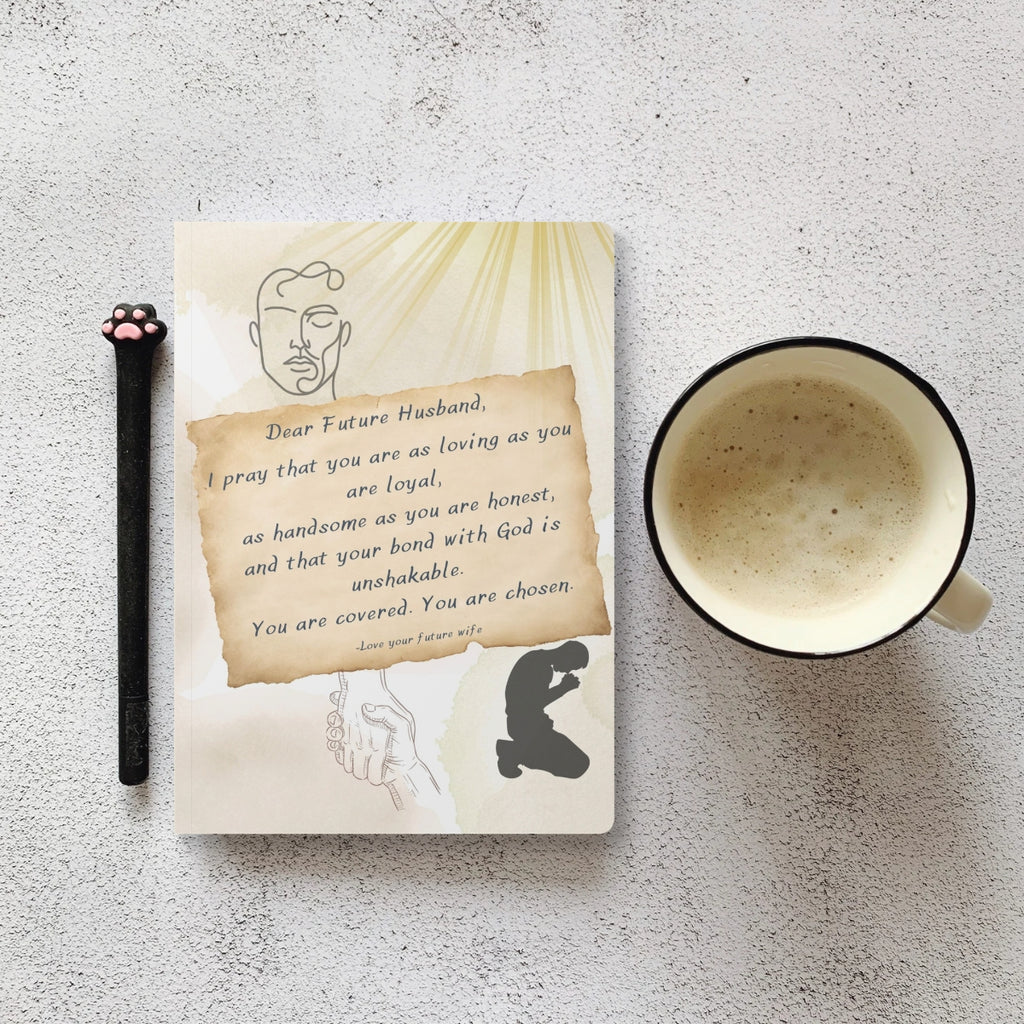 Dear Future Husband,
I pray that you are as loving as you
are loyal,
as handsome as you are honest,
and that your bond with God is
unshakable.
You are covered. You are chosen.
-Love your future wife